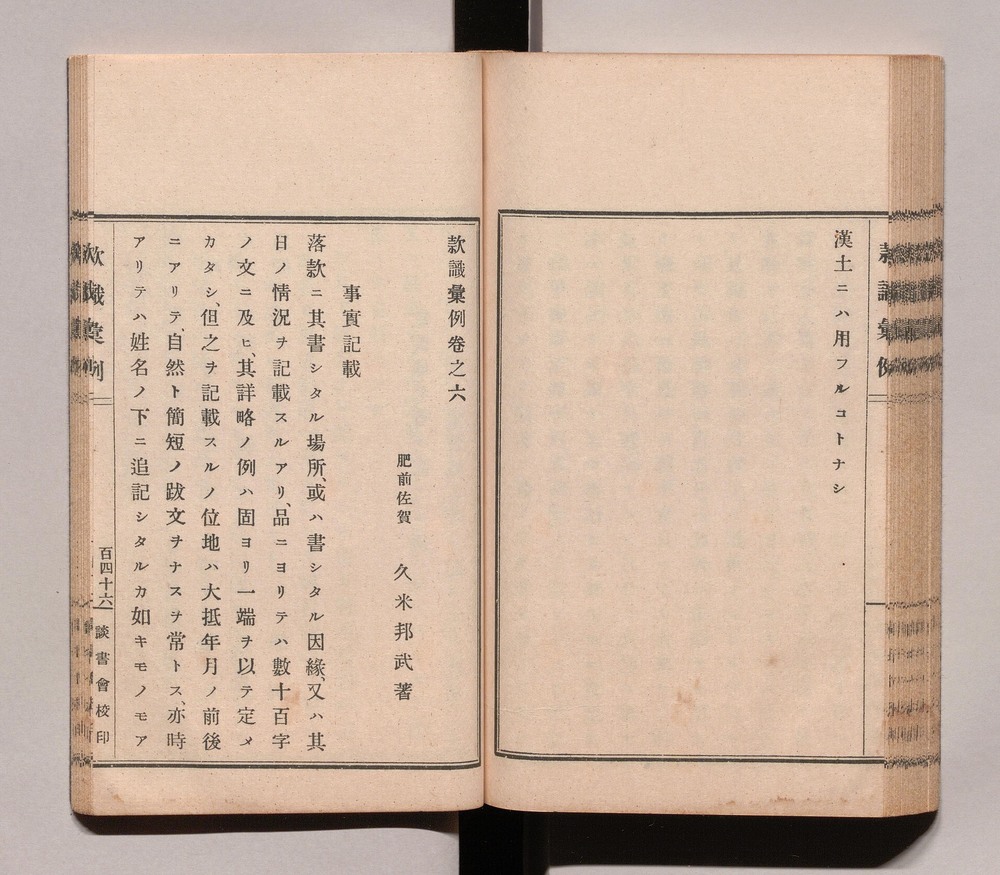 漢土ニハ用フルコトナシ
款識彙例卷之六
肥前佐賀 久米邦武著
事實記載
落款ニ其書シタル場所、或ハ書シタル因緣、又ハ其
日ノ情況ヲ記載スルアリ、品ニヨリテハ數十百字
ノ文ニ及ヒ、其詳略ノ例ハ固ヨリ一端ヲ以テ定メ
カタシ、但之ヲ記載スルノ位地ハ大抵年月ノ前後
ニアリテ、自然ト簡短ノ跋文ヲナスヲ常トス、亦時
アリテハ姓名ノ下ニ追記シタルカ如キモノモア
款識彙例
百四十六
談書會校印